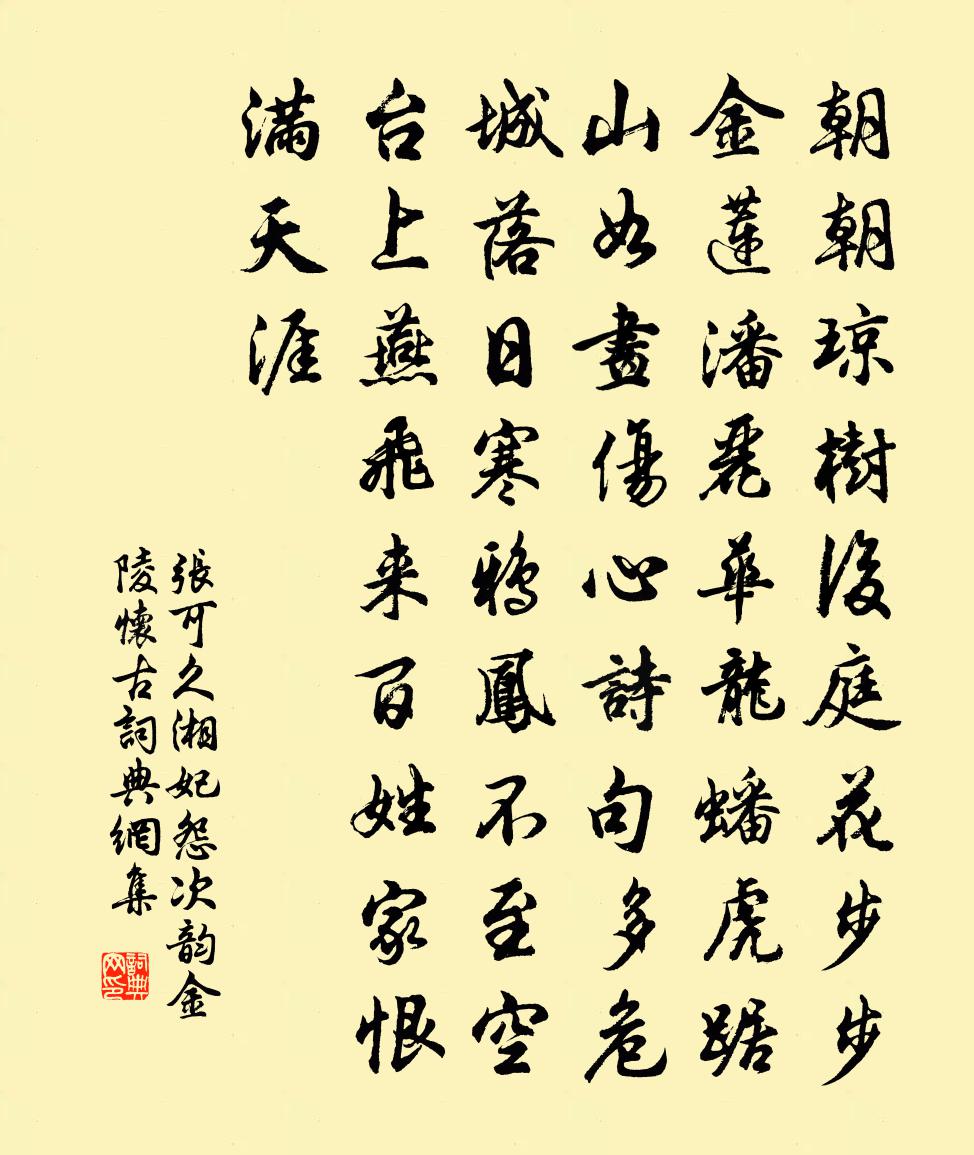 朝朝琼樹後庭花步步
金蓮潘麗華龍蟠虎踞
山如畫傷心詩句多危
城落日寒鴉鳳不至空
台上燕飛来百姓家恨
满天涯
張可久湘妃怨次韵金
陵懷古詞典網集
詞典
网印